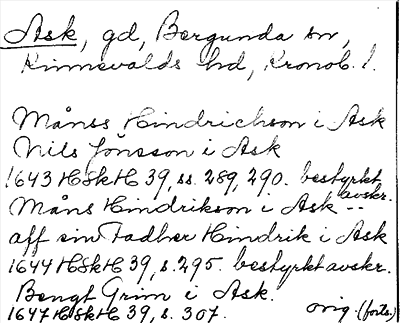 Ask, gd, Bergunda sn,
Kinnevalds hd, Kronob. l.
Månss Hindrichson i Ask
Nils Jönsson i Ask
1643 HSkH 39, ss. 289, 290. bestyrkt avskr.
Måns Hindrikson i Ask --
aff sin Fadher Hindrik i Ask
1644 HSkH 39, s. 295. bestyrkt avskr.
Bengt Grim i Ask.
1647 HSkH 39, s. 307. orig. (forts.)